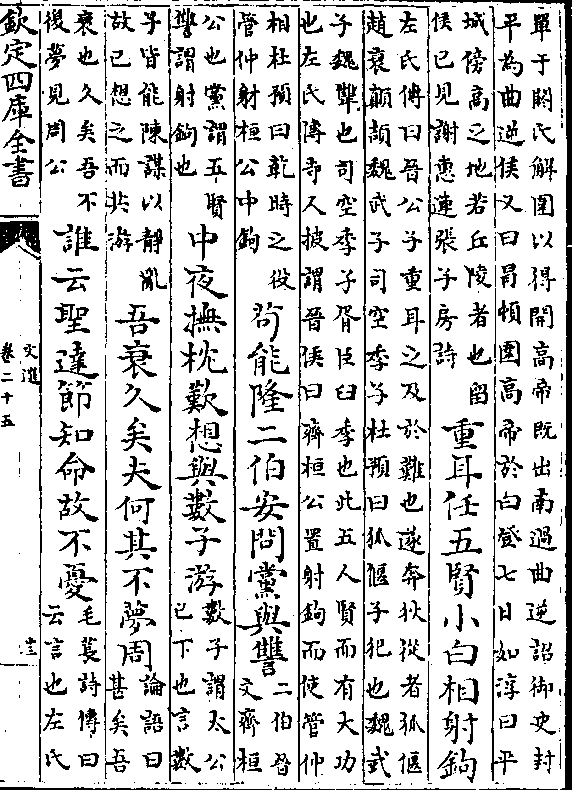 單于閼氏解圍以得開高帝既出南過曲逆詔御史封
平為曲逆侯又曰冒頓圍高帝於白登七日如淳曰平
城傍高之地若丘陵者也留
侯已見謝惠連張子房詩
重耳任五賢小白相射鉤
左氏傳曰晉公子重耳之及於難也遂奔狄從者狐偃
趙衰顛頡魏武子司空季子杜預曰狐偃子犯也魏武
子魏犫也司空季子胥臣臼季也此五人賢而有大功
也左氏傳寺人披謂晉侯曰齊桓公置射鉤而使管仲
相杜預曰乾時之役
管仲射桓公中鉤
苟能隆二伯安問黨與讐
二伯晉
文齊桓
公也黨謂五賢
讐謂射鉤也
中夜撫枕歎想與數子游
數子謂太公
已下也言數
子皆能陳謀以靜亂
故已想之而共游
吾衰久矣夫何其不夢周
論語曰
甚矣吾
衰也久矣吾不
後夢見周公
誰云聖達節知命故不憂
毛萇詩傳曰
云言也左氏
欽定四庫全書
文選
卷二十五